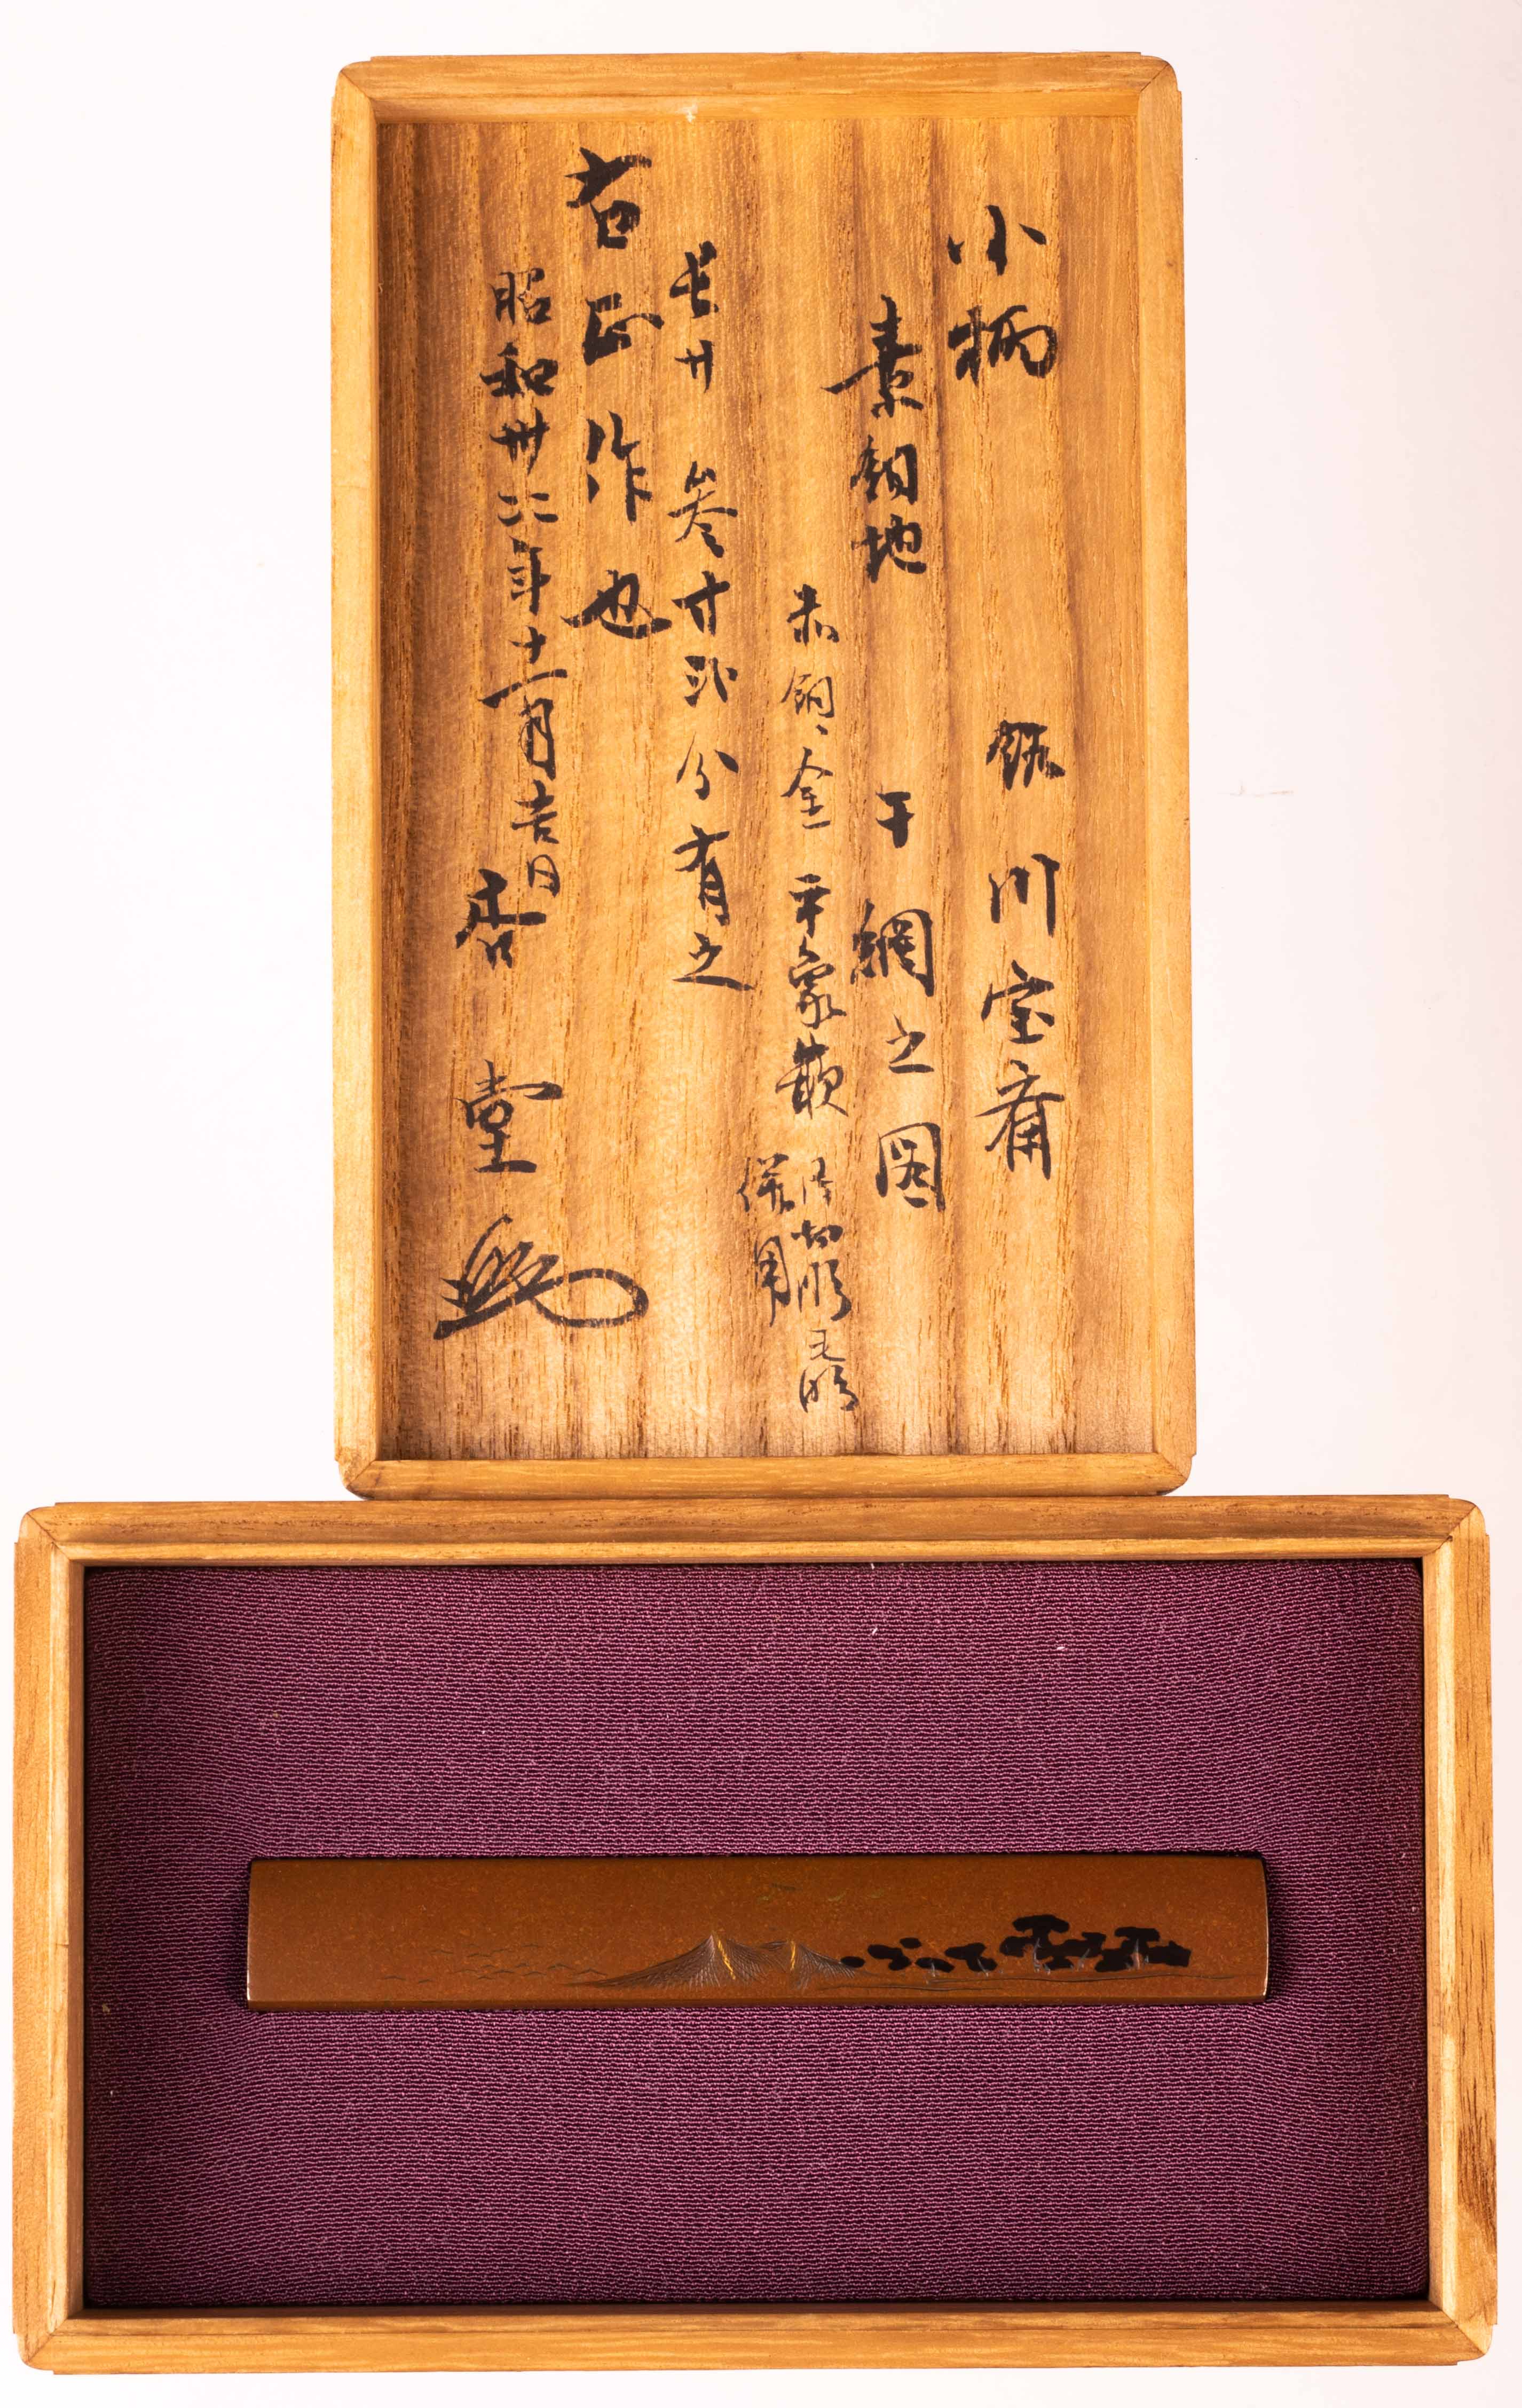 小柄 銘 川宝斎
素銅地 干網之図
赤銅、金 平象嵌 片切彫毛彫
併用
長サ 参寸弐分有之
右正作也
昭和卅年十一月吉日
香堂